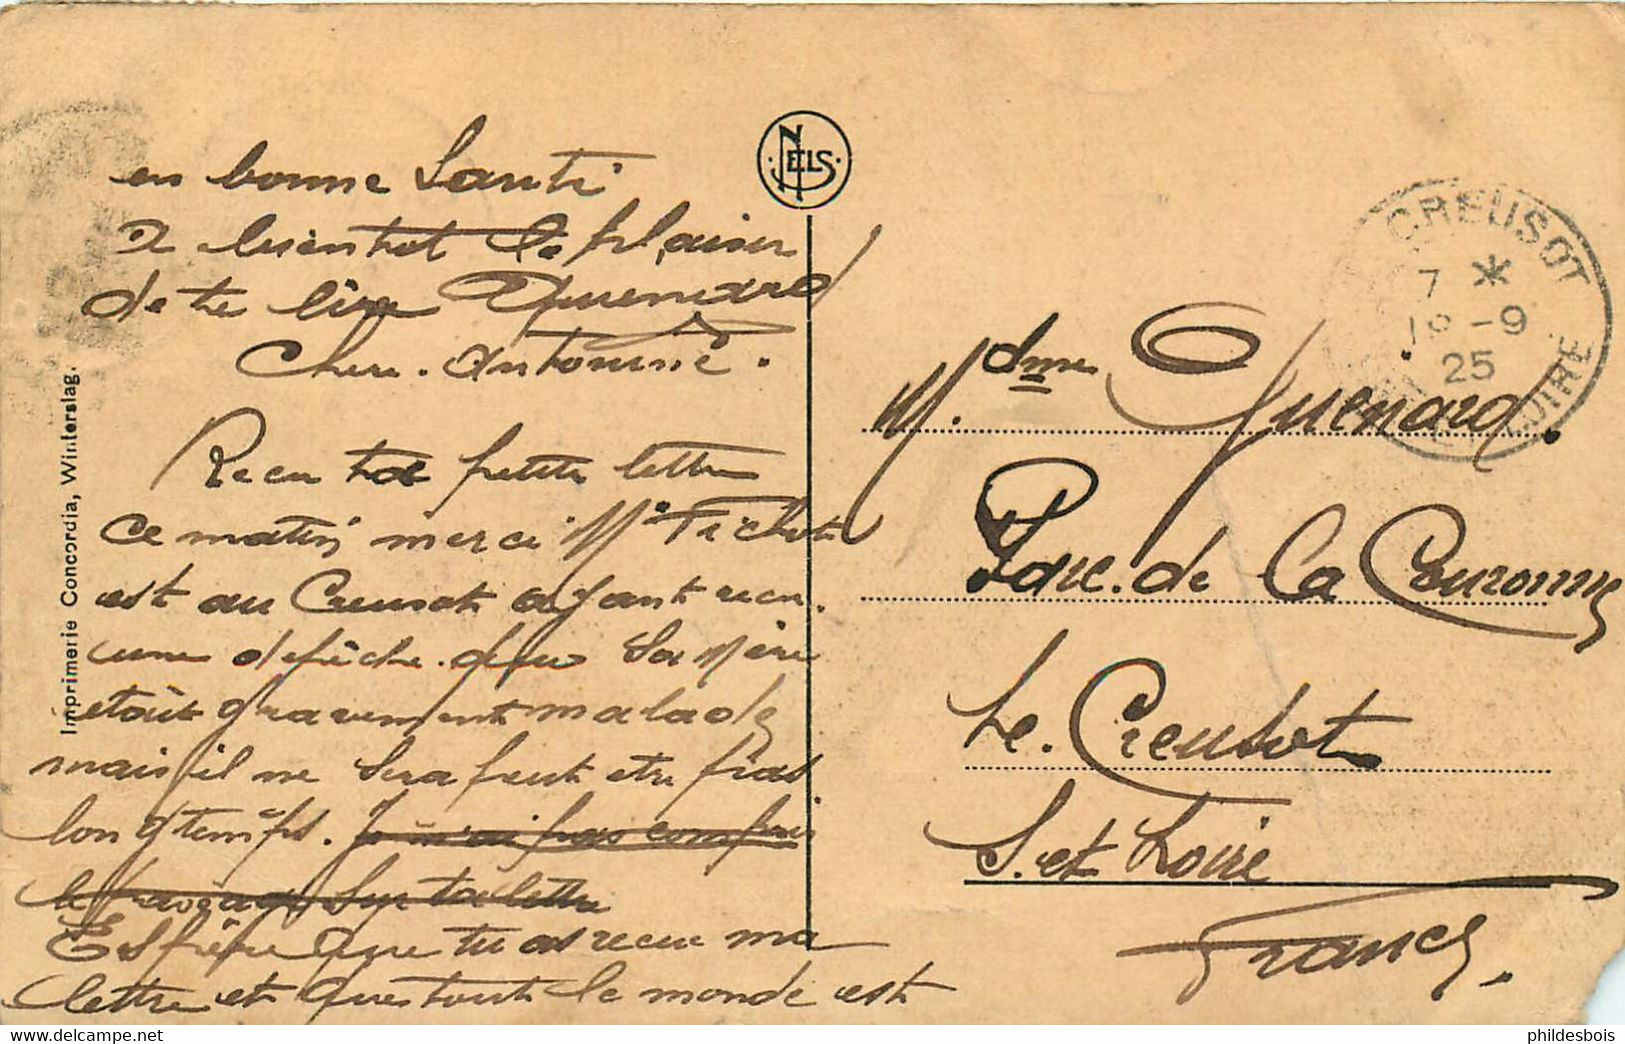 en bonne Santé
a bientot le plaisir
de te lire Guenard
Chere. Antoinne.
Recu ta petite lettre
ce matin merci Mr Pichot
est au Creusot ayant recu.
une depêche. que Sa Mère
etait gravement malade
mais il ne Sera peut etre pas
longtemps. Je n'ai pas compris
le passage Sur ta lettre
Espère que tu as recue ma
lettre et que tout le monde est
NELS
Imprimerie Concordia, Winterslag.
CREUSOT
7 *
18 -9
25
LOIRE
Mdme Guenard.
Parc. de La Couronne
Le. Creusot
S. et Loire
France.
phildesbois